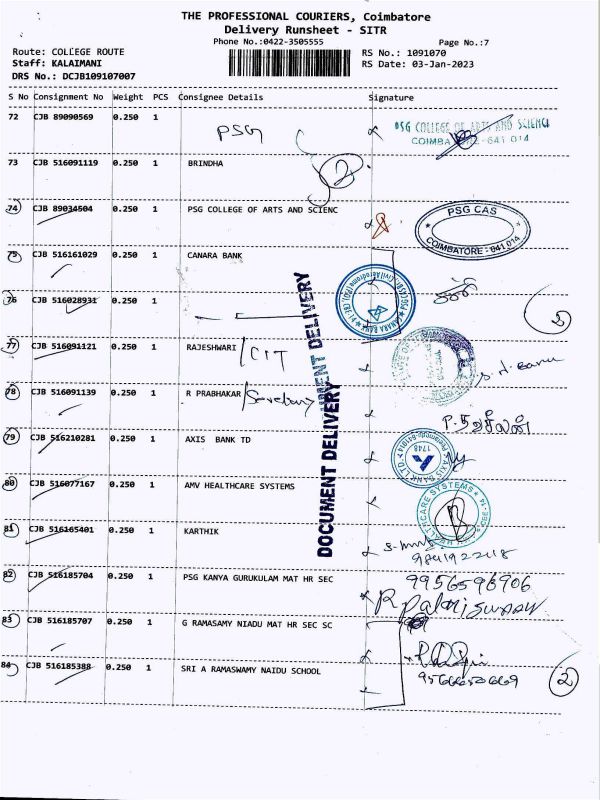 THE PROFESSIONAL COURIERS, Coimbatore
Delivery Runsheet - SITR
Phone No.:0422-3505555
Page No.:7
Route: COLLEGE ROUTE
RS No.: 1091070
Staff: KALAIMANI
RS Date: 03-Jan-2023
DRS No.: DCJB109107007
S No Consignment No Weight PCS Consignee Details Signature
72 CJB 89090569 0.250 1 PSG
PSG COLLEGE OF ARTS AND SCIENCE
COIMBATORE-641 014
73 CJB 516091119 0.250 1 BRINDHA
2
74 CJB 89034504 0.250 1 PSG COLLEGE OF ARTS AND SCIENC
PSG CAS
COIMBATORE - 641 014
75 CJB 516161029 0.250 1 CANARA BANK
CANARA BANK
76 CJB 516028931 0.250 1
DOCUMENT DELIVERY
77 CJB 516091121 0.250 1 RAJESHWARI / CIT
78 CJB 516091139 0.250 1 R PRABHAKAR / Secretary
DOCUMENT DELIVERY
79 CJB 516210281 0.250 1 AXIS BANK TD
AXIS BANK LTD
1748
80 CJB 516077167 0.250 1 AMV HEALTHCARE SYSTEMS
HEALTHCARE SYSTEMS
81 CJB 516165401 0.250 1 KARTHIK
82 CJB 516185704 0.250 1 PSG KANYA GURUKULAM MAT HR SEC
9956596906
R Palaniswamy
83 CJB 516185707 0.250 1 G RAMASAMY NIADU MAT HR SEC SC
84 CJB 516185388 0.250 1 SRI A RAMASWAMY NAIDU SCHOOL
9566650669
2